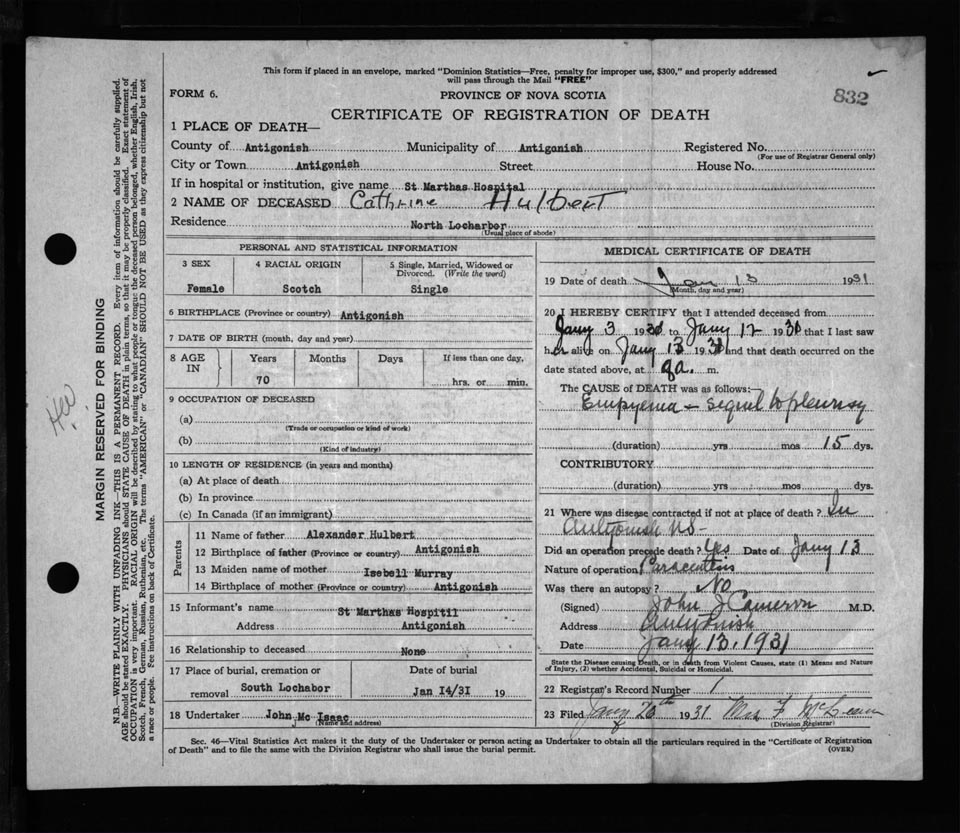 This form if placed in an envelope, marked "Dominion Statistics—Free, penalty for improper use, $300," and properly addressed
will pass through the Mail "FREE"
832
FORM 6.
PROVINCE OF NOVA SCOTIA
CERTIFICATE OF REGISTRATION OF DEATH
1 PLACE OF DEATH—
County of Antigonish Municipality of Antigonish Registered No.
(For use of Registrar General only)
City or Town Antigonish Street House No.
If in hospital or institution, give name St Marthas Hospital
2 NAME OF DECEASED Cathrine Hulbert
Residence North Locharbor
(Usual place of abode)
PERSONAL AND STATISTICAL INFORMATION
3 SEX 4 RACIAL ORIGIN 5 Single, Married, Widowed or
Divorced. (Write the word)
Female Scotch Single
6 BIRTHPLACE (Province or country) Antigonish
7 DATE OF BIRTH (month, day and year)
8 AGE IN Years Months Days If less than one day,
70 hrs. or min.
9 OCCUPATION OF DECEASED
(a)
(Trade or occupation or kind of work)
(b)
(Kind of industry)
10 LENGTH OF RESIDENCE (in years and months)
(a) At place of death
(b) In province
(c) In Canada (if an immigrant)
Parents
11 Name of father Alexander Hulbert
12 Birthplace of father (Province or country) Antigonish
13 Maiden name of mother Isebell Murray
14 Birthplace of mother (Province or country) Antigonish
15 Informant's name St Marthas Hospitil
Address Antigonish
16 Relationship to deceased None
17 Place of burial, cremation or Date of burial
removal South Lochabor Jan 14/31 19
18 Undertaker John Mc Isaac
(Name and address)
MEDICAL CERTIFICATE OF DEATH
19 Date of death Jan 13 1931
(Month, day and year)
20 I HEREBY CERTIFY that I attended deceased from
Jany 3 193 to Jany 12 193 that I last saw
her alive on Jany 13 193 and that death occurred on the
date stated above, at a. m.
The CAUSE of DEATH was as follows:—
Empyema – sequel to pleurisy
(duration) yrs mos 15 dys.
CONTRIBUTORY
(duration) yrs mos dys.
21 Where was disease contracted if not at place of death? In
Antigonish NS
Did an operation precede death? Yes Date of Jany 13
Nature of operation Paracentesis
Was there an autopsy? No
(Signed) John J Cameron M.D.
Address Antigonish
Date Jany 13, 1931
State the Disease causing Death, or in death from Violent Causes, state (1) Means and Nature
of Injury, (2) whether Accidental, Suicidal or Homicidal.
22 Registrar's Record Number 1
23 Filed Jany 20th 1931 Mrs F McLean
(Division Registrar)
Sec. 46—Vital Statistics Act makes it the duty of the Undertaker or person acting as Undertaker to obtain all the particulars required in the "Certificate of Registration
of Death" and to file the same with the Division Registrar who shall issue the burial permit. (OVER)
MARGIN RESERVED FOR BINDING
N.B.—WRITE PLAINLY WITH UNFADING INK—THIS IS A PERMANENT RECORD. Every item of information should be carefully supplied.
AGE should be stated EXACTLY. PHYSICIANS should STATE CAUSE OF DEATH in plain terms, so that it may be properly classified. Exact statement of
OCCUPATION is very important. RACIAL ORIGIN will be described by stating to what people or tongue the deceased person belonged, whether English, Irish,
Scotch, French, German, Russian, Ruthenian, etc. The terms "AMERICAN" or "CANADIAN" SHOULD NOT BE USED as they express citizenship but not
a race or people. Fee instructions on back of Certificate.